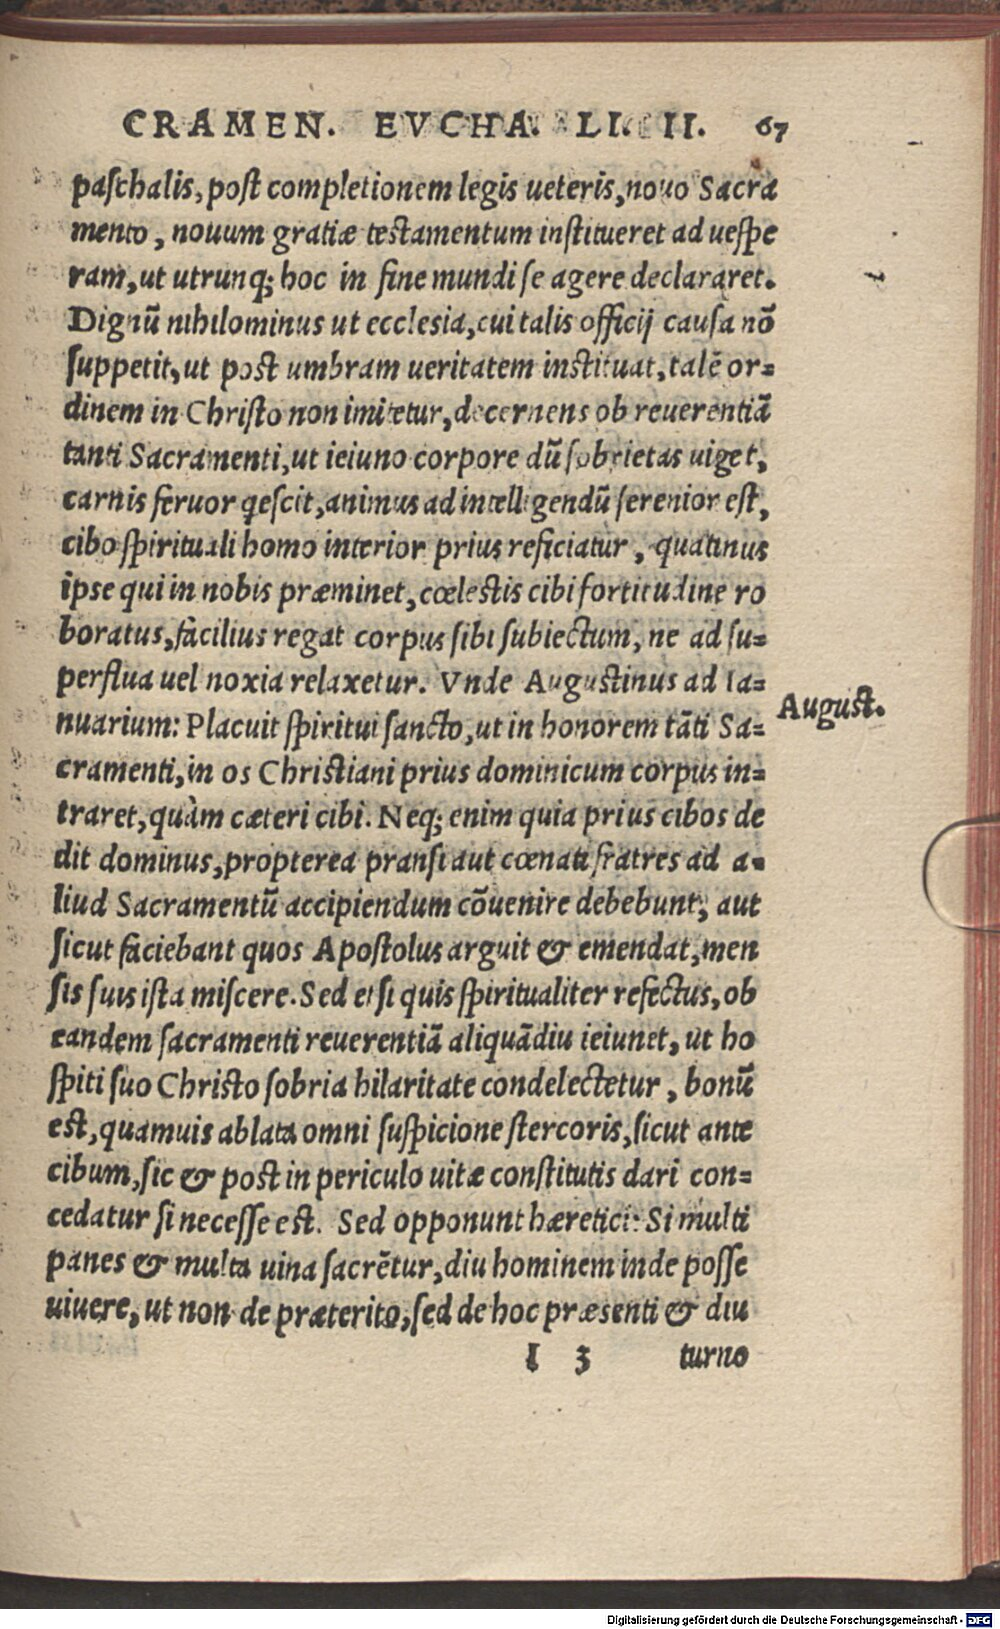 CRAMEN. EVCHA. LI. II. 67
paschalis, post completionem legis ueteris, nouo Sacra
mento, nouum gratiæ testamentum institueret ad uespe
ram, ut utrunq; hoc in fine mundi se agere declararet.
Dignū nihilominus ut ecclesia, cui talis officij causa nō
suppetit, ut post umbram ueritatem instituat, talē or=
dinem in Christo non imitetur, decernens ob reuerentiā
tanti Sacramenti, ut ieiuno corpore dū sobrietas uiget,
carnis feruor qescit, animus ad intelligendū serenior est,
cibo spirituali homo interior prius reficiatur, quatinus
ipse qui in nobis præminet, cœlestis cibi fortitudine ro
boratus, facilius regat corpus sibi subiectum, ne ad su=
perflua uel noxia relaxetur. Vnde Augustinus ad Ia=
August.
nuarium: Placuit spiritui sancto, ut in honorem tāti Sa=
cramenti, in os Christiani prius dominicum corpus in=
traret, quàm cæteri cibi. Neq; enim quia prius cibos de
dit dominus, propterea pransi aut cœnati fratres ad a=
liud Sacramentū accipiendum cōuenire debebunt, aut
sicut faciebant quos Apostolus arguit & emendat, men
sis suis ista miscere. Sed et si quis spiritualiter refectus, ob
eandem sacramenti reuerentiā aliquādiu ieiunet, ut ho
spiti suo Christo sobria hilaritate condelectetur, bonū
est, quamuis ablata omni suspicione stercoris, sicut ante
cibum, sic & post in periculo uitæ constitutis dari con=
cedatur si necesse est. Sed opponunt hæretici: Si multi
panes & multa uina sacrētur, diu hominem inde posse
uiuere, ut non de præterito, sed de hoc præsenti & diu
I 3 turno
Digitalisierung gefördert durch die Deutsche Forschungsgemeinschaft - DFG